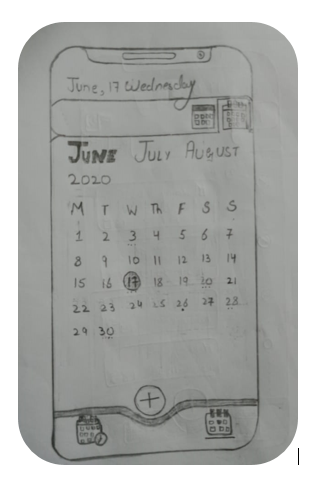 June, 17 Wednesday
JUNE JULY AUGUST
2020
M T W Th F S S
1 2 3 4 5 6 7
8 9 10 11 12 13 14
15 16 17 18 19 20 21
22 23 24 25 26 27 28
29 30
+